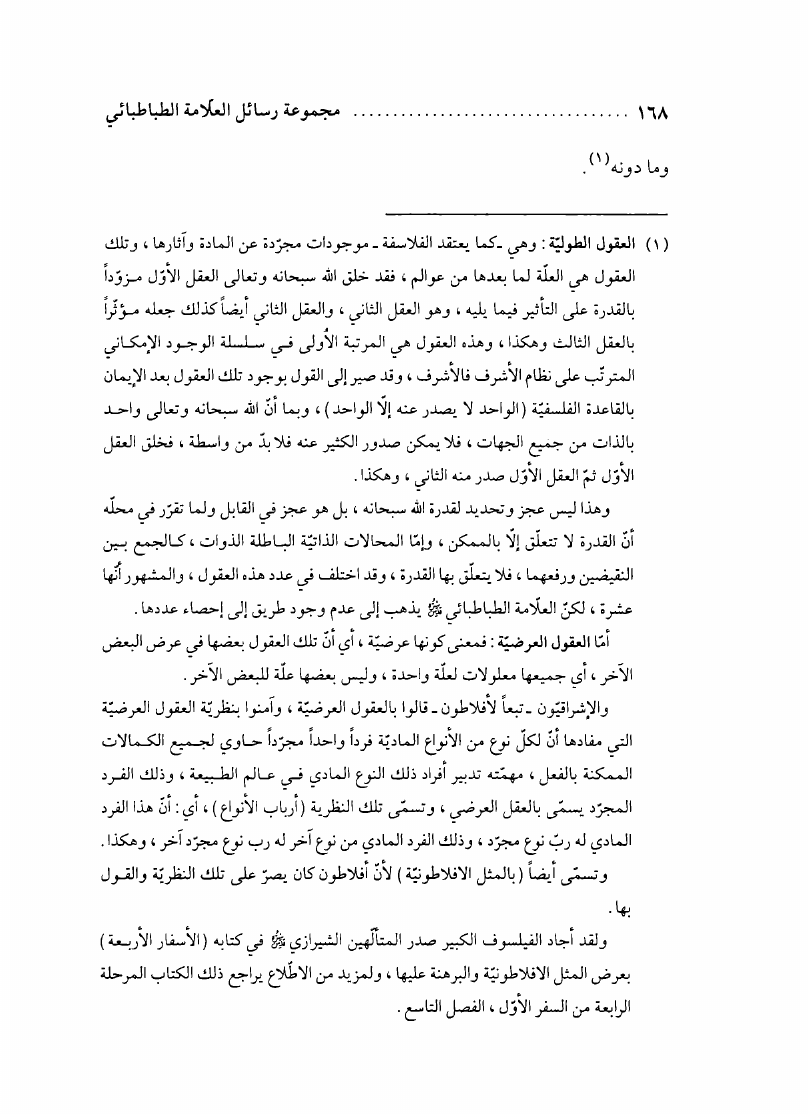 ١٦٨ .................................. مجموعة رسائل العلّامة الطباطبائي
وما دونه(١).
(١) العقول الطوليّة : وهي ـ كما يعتقد الفلاسفة ـ موجودات مجرّدة عن المادة وآثارها ، وتلك
العقول هي العلّة لما بعدها من عوالم ، فقد خلق الله سبحانه وتعالى العقل الأوّل مـزوّداً
بالقدرة على التأثير فيما يليه ، وهو العقل الثاني ، والعقل الثاني أيضاً كذلك جعله مـؤثّراً
بالعقل الثالث وهكذا ، وهذه العقول هي المرتبة الأولى فـي سـلسـلة الوجـود الإمكـاني
المترتّب على نظام الأشرف فالأشرف ، وقد صير إلى القول بوجود تلك العقول بعد الإيمان
بالقاعدة الفلسفيّة (الواحد لا يصدر عنه إلّا الواحد) ، وبما أنّ الله سبحانه وتعالى واحـد
بالذات من جميع الجهات ، فلا يمكن صدور الكثير عنه فلا بدّ من واسطة ، فخلق العقل
الأوّل ثمّ العقل الأوّل صدر منه الثاني ، وهكذا .
وهذا ليس عجز وتحديد لقدرة الله سبحانه ، بل هو عجز في القابل ولما تقرّر في محلّه
أنّ القدرة لا تتعلّق إلّا بالممكن ، وإمّا المحالات الذاتيّة البـاطلة الذوات ، كـالجمع بـين
النقيضين ورفعهما ، فلا يتعلّق بها القدرة ، وقد اختلف في عدد هذه العقول ، والمشهور أنّها
عشرة ، لكنّ العلّامة الطباطبائي ﷺ يذهب إلى عدم وجود طريق إلى إحصاء عددها .
أمّا العقول العرضيّة : فمعنى كونها عرضيّة ، أي أنّ تلك العقول بعضها في عرض البعض
الآخر ، أي جميعها معلولات لعلّة واحدة ، وليس بعضها علّة للبعض الآخر .
والإشراقيّون ـ تبعاً لأفلاطون ـ قالوا بالعقول العرضيّة ، وآمنوا بنظريّة العقول العرضيّة
التي مفادها أنّ لكلّ نوع من الأنواع الماديّة فرداً واحداً مجرّداً حـاوي لجـميع الكـمالات
الممكنة بالفعل ، مهمّته تدبير أفراد ذلك النوع المادي فـي عـالم الطـبيعة ، وذلك الفـرد
المجرّد يسمّى بالعقل العرضي ، وتسمّى تلك النظرية (أرباب الأنواع) ، أي : أنّ هذا الفرد
المادي له ربّ نوع مجرّد ، وذلك الفرد المادي من نوع آخر له رب نوع مجرّد آخر ، وهكذا .
وتسمّى أيضاً (بالمثل الافلاطونيّة) لأنّ أفلاطون كان يصرّ على تلك النظريّة والقـول
بها .
ولقد أجاد الفيلسوف الكبير صدر المتألّهين الشيرازي ﷺ في كتابه (الأسفار الأربعة)
بعرض المثل الافلاطونيّة والبرهنة عليها ، ولمزيد من الاطّلاع يراجع ذلك الكتاب المرحلة
الرابعة من السفر الأوّل ، الفصل التاسع .